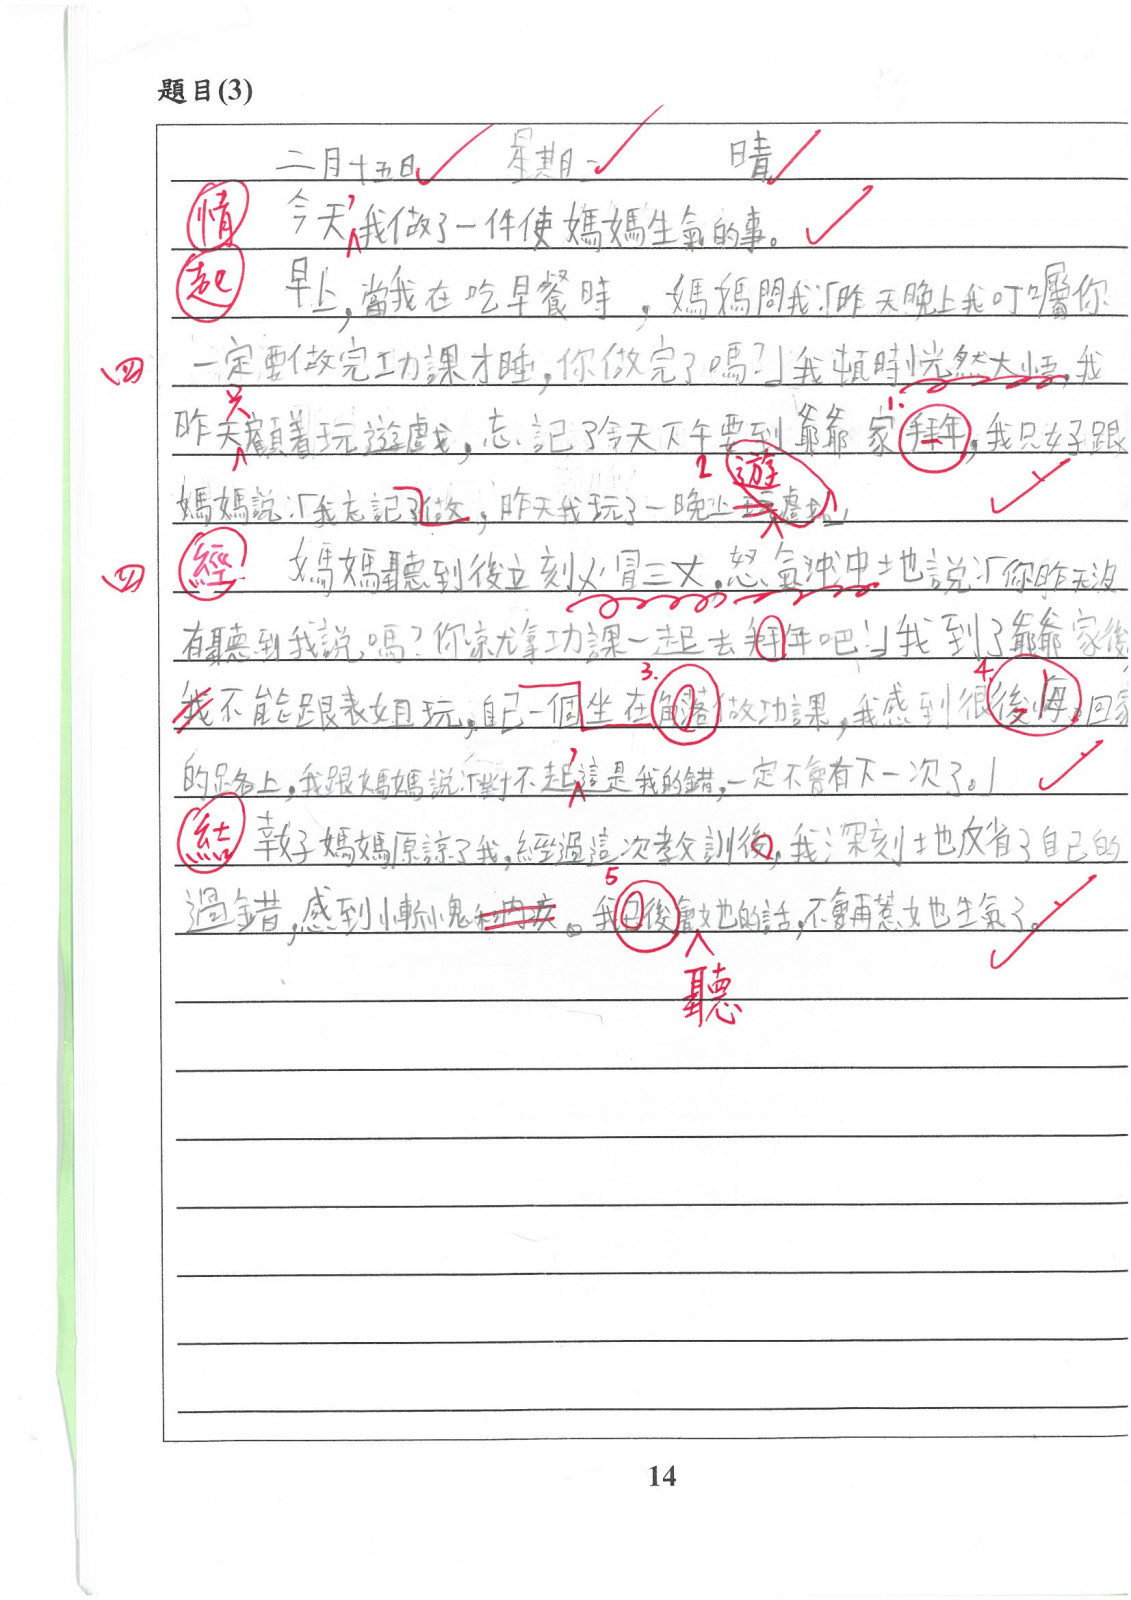 題目(3)
二月十五日 星期一 晴
情 今天，我做了一件使媽媽生氣的事。
起 早上，當我在吃早餐時，媽媽問我:「昨天晚上我叮囑你
四 一定要做完功課才睡，你做完了嗎?」我頓時恍然大悟，我
昨天只顧着玩遊戲，忘記了今天下午要到爺爺家1.拜年，我只好跟
媽媽說:「我忘記了做，昨天我玩了一晚上2遊戲。」
四 經 媽媽聽到後立刻火冒三丈，怒氣沖沖地說:「你昨天沒
有聽到我說嗎?你就拿功課一起去拜年吧!」我到了爺爺家後
我不能跟表姐玩，自己一個坐在3.角落做功課，我感到很4.後悔。回家
的路上，我跟媽媽說:「對不起，這是我的錯，一定不會有下一次了。」
結 幸好媽媽原諒了我，經過這次教訓後，我深刻地反省了自己的
過錯，感到慚愧。我5日後會她的話，不會再惹她生氣了。
聽
14